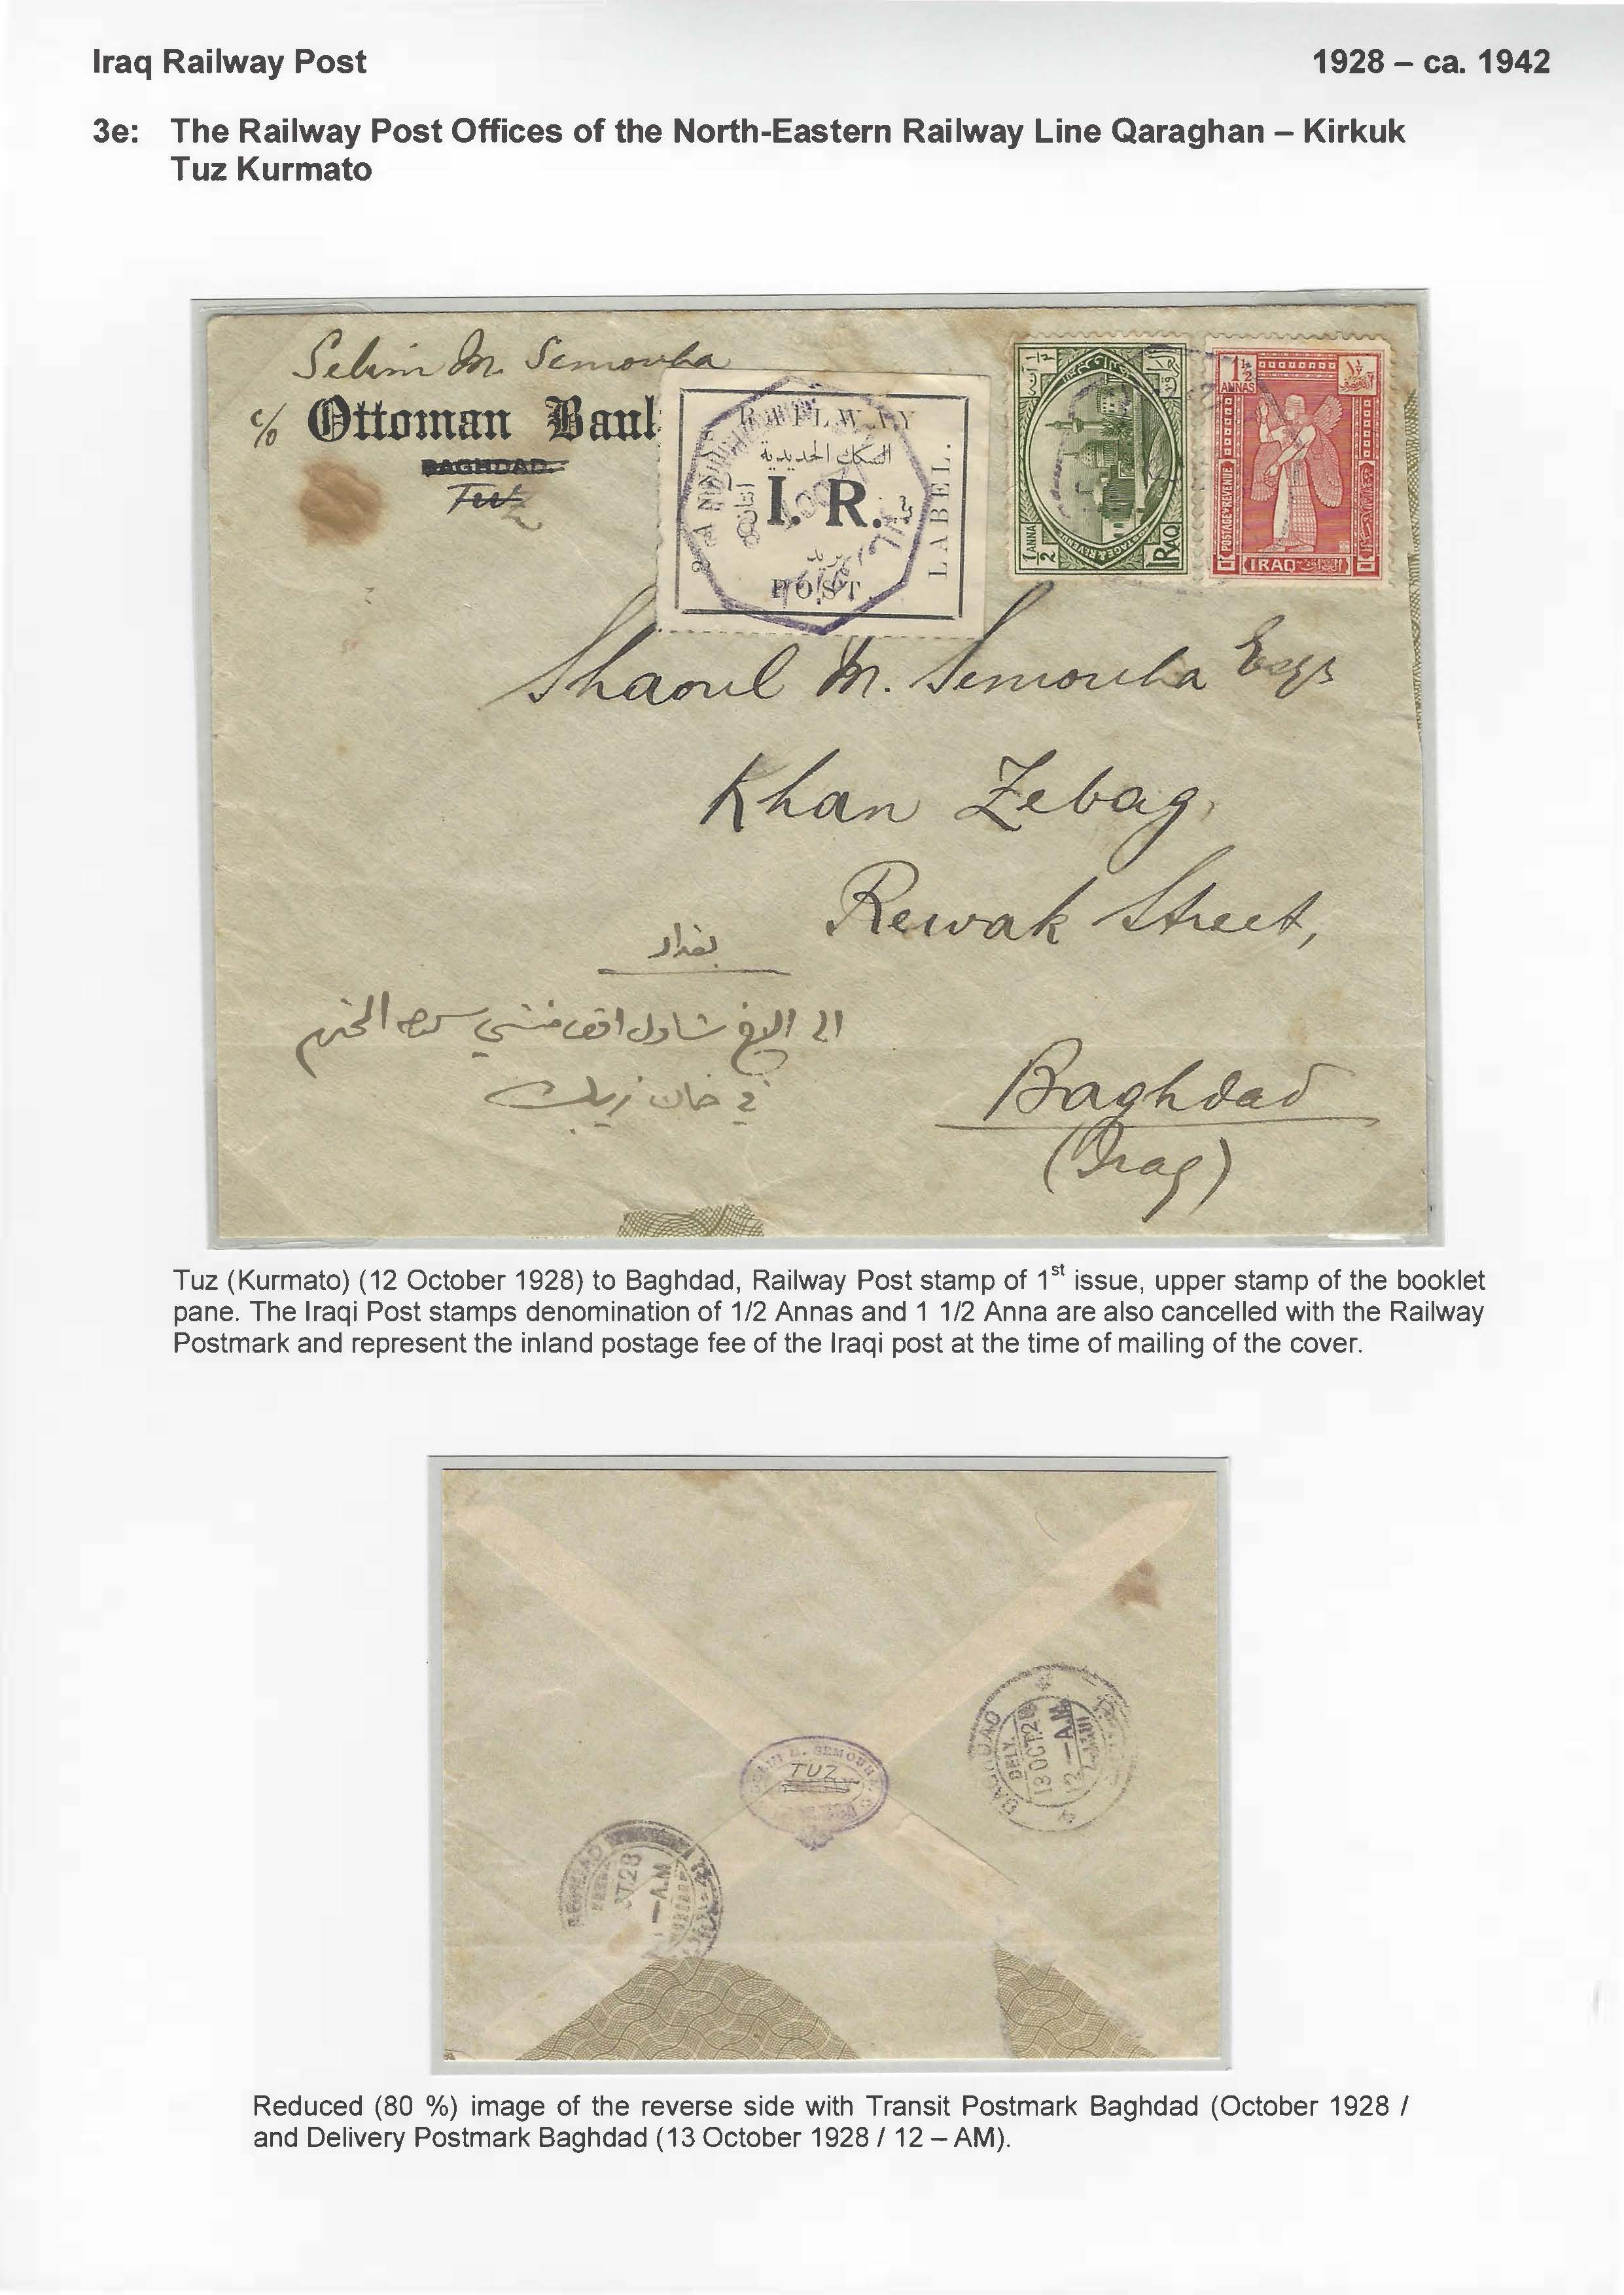 Iraq Railway Post
1928 – ca. 1942
3e: The Railway Post Offices of the North-Eastern Railway Line Qaraghan – Kirkuk
Tuz Kurmato
Selim M. Semouha
c/o Ottoman Bank
BAGHDAD.
Tuz
RAILWAY
السكك الحديدية
2 ANNAS
I. R.
LABEL.
بريد
POST
1 1/2
ANNAS
1/2 ANNA
POSTAGE & REVENUE
IRAQ
POSTAGE & REVENUE
IRAQ
Shaoul M. Semouha Esqr
Khan Zebag,
Rewak Street,
بغداد
الى الاخ شاول افندي منشي سموحه المحترم
في خان زبك
Baghdad
(Iraq)
Tuz (Kurmato) (12 October 1928) to Baghdad, Railway Post stamp of 1st issue, upper stamp of the booklet
pane. The Iraqi Post stamps denomination of 1/2 Annas and 1 1/2 Anna are also cancelled with the Railway
Postmark and represent the inland postage fee of the Iraqi post at the time of mailing of the cover.
BAGHDAD
DELY.
13 OCT 28
12 – A.M.
SELIM M. SEMOUHA
TUZ
BAGHDAD
OCT 28
– A.M
Reduced (80 %) image of the reverse side with Transit Postmark Baghdad (October 1928 /
and Delivery Postmark Baghdad (13 October 1928 / 12 – AM).